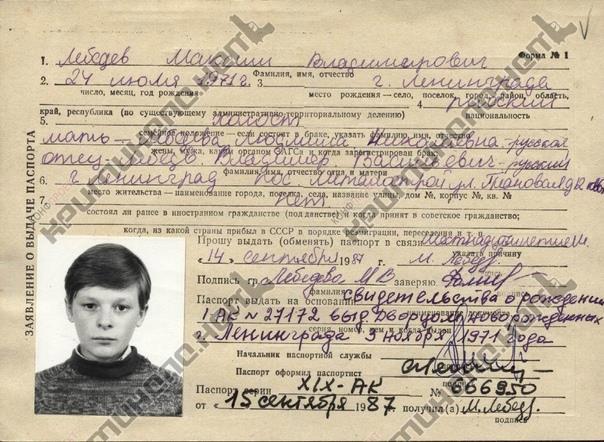 Форма № 1
ЗАЯВЛЕНИЕ О ВЫДАЧЕ ПАСПОРТА
1. Лебедев Максим Владимирович
Фамилия, имя, отчество
2. 24 июля 1971 г. 3. г. Ленинград
число, месяц, год рождения место рождения — село, поселок, город, район, область,
4. русский
край, республика (по существующему административно-территориальному делению) национальность
5. холост
семейное положение — если состоит в браке, указать фамилию, имя, отчество
мать Людмила Михайловна-русская
жены, мужа, каким органом ЗАГСа и когда зарегистрирован брак
отец Лебедев Владимир -русский
фамилия, имя, отчество отца и матери
6. г. Ленинград пос. Металлострой ул. Плановая д.12
место жительства — наименование города, поселка, села, название улицы, дом №, корпус №, кв. №
7. нет
состоял ли ранее в иностранном гражданстве (подданстве) и когда принят в советское гражданство;
когда, из какой страны прибыл в СССР в порядке репатриации, переселения и т. п.
Прошу выдать (обменять) паспорт в связи
указать причину
14 сентября 1987 г. М. Лебед.
Подпись гр. Лебедева М В заверяю
фамилия
Паспорт выдать на основании свидетельства о рождении
I АК № 27172 выд. Дворцом новорожденных
серия, номер, кем и когда выдан
г. Ленинграда 9 ноября 1971 года
Начальник паспортной службы
подпись
Паспорт оформил паспортист
подпись
Паспорт серии XIX-АК № 666950
от « 15 сентября 1987. получил(а) М. Лебед.
подпись